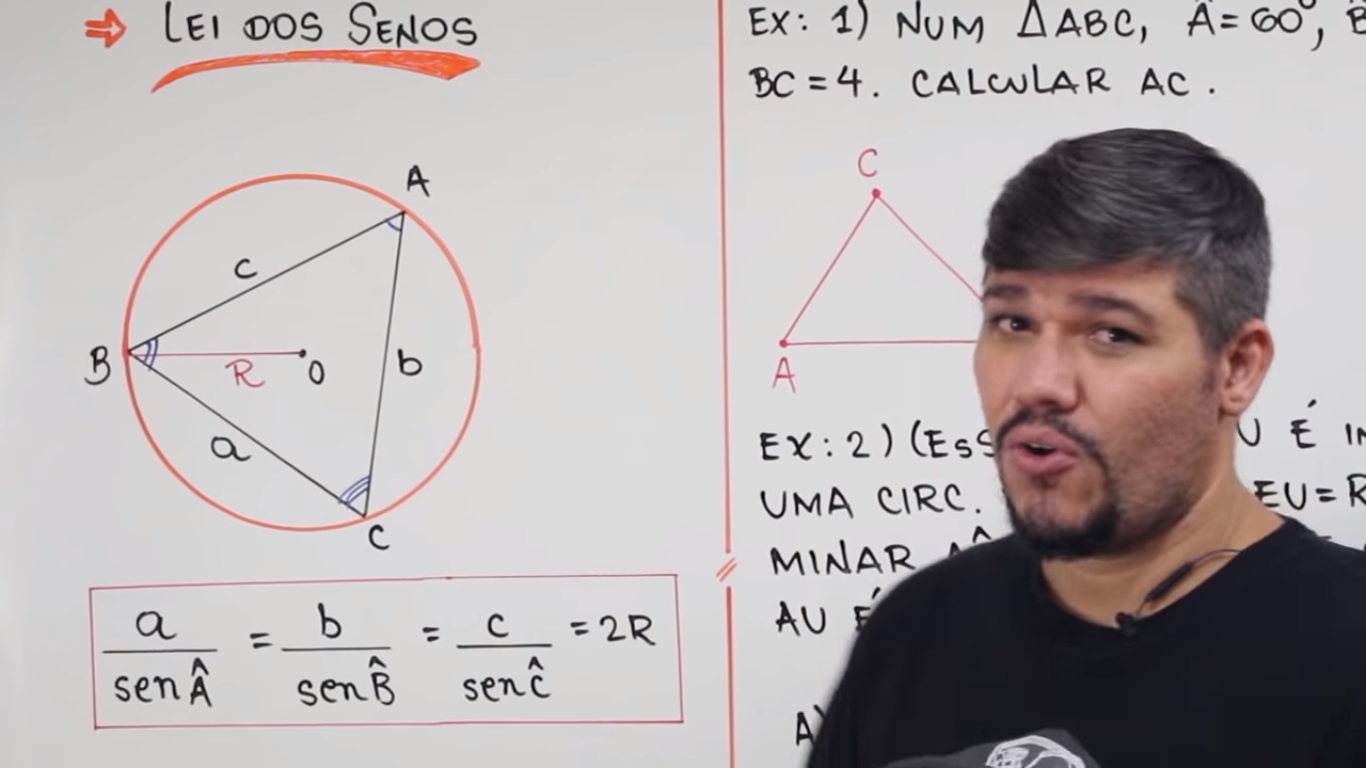 ⇒ LEI DOS SENOS
A
c
B
R
O
b
a
C
a/sen Â = b/sen B̂ = c/sen Ĉ = 2R
EX: 1) NUM ΔABC, Â = 60°,
BC = 4. CALCULAR AC.
C
A
EX: 2) É
UMA CIRC. EU = R
MINAR
AU É
A)